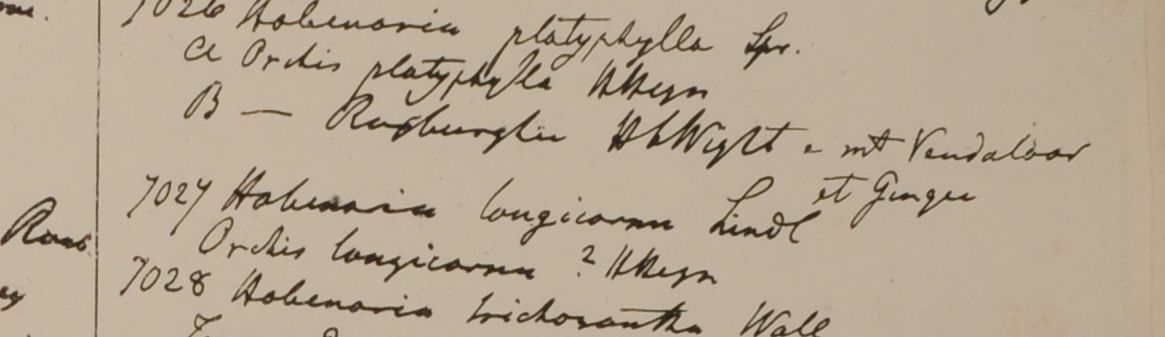 7026 Habenaria platyphylla Spr.
a Orchis platyphylla HHeyn
B — Roxburghii HbWight e mt Vendaloor
et Gingee
7027 Habenaria longicornu Lindl
Orchis longicornu ? HHeyn
Roxb.
7028 Habenaria trichosantha Wall